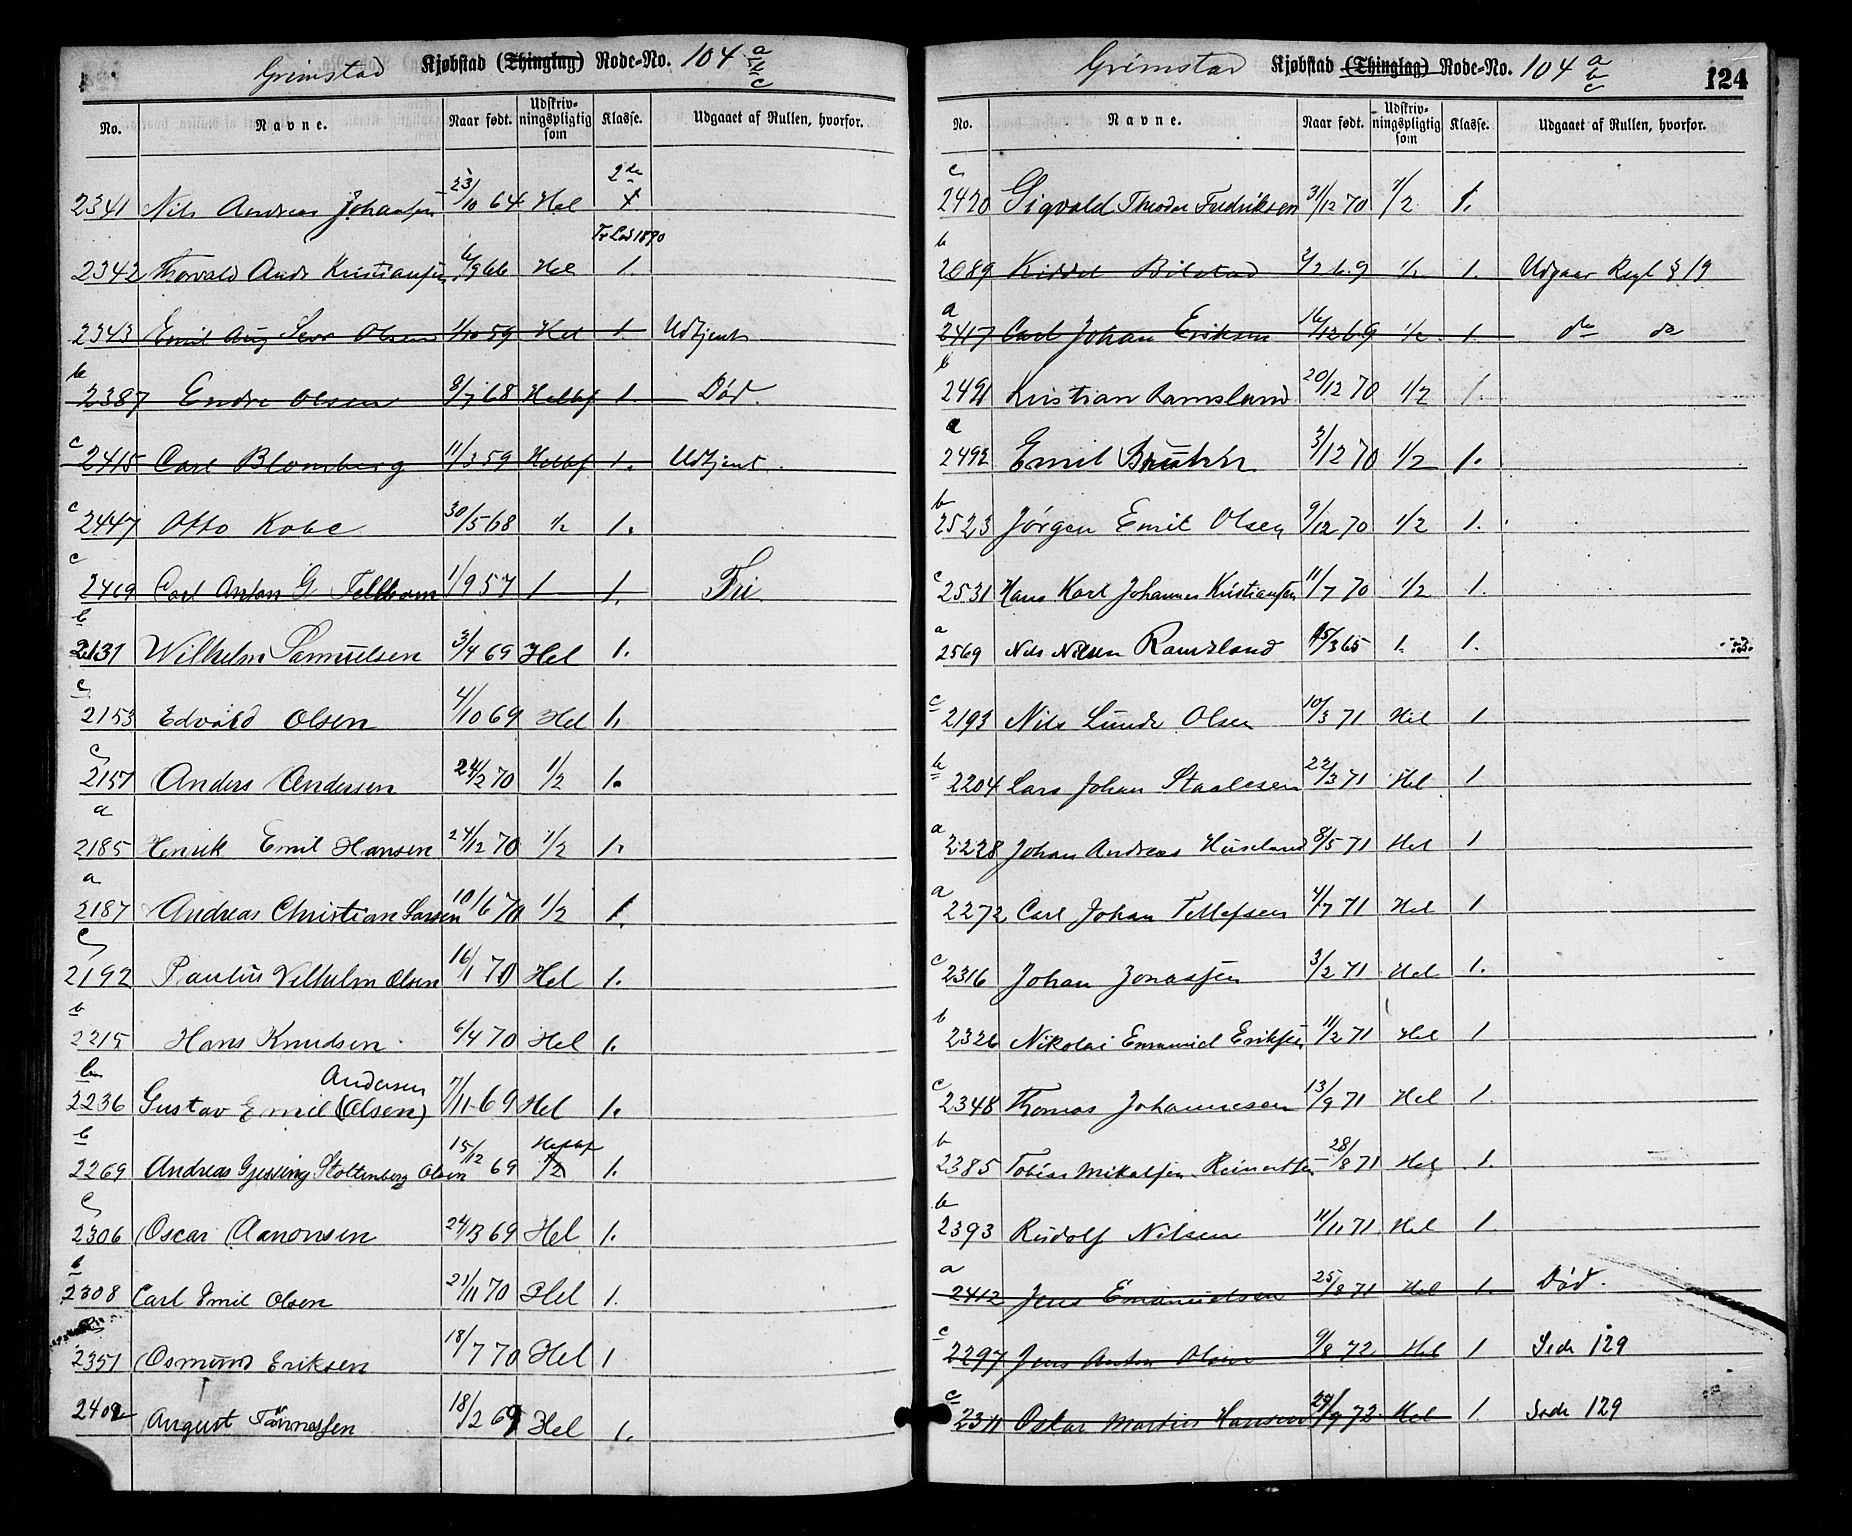 Grimstad Kjøbstad (Thinglag) Rode-No. 104 a b c
No. Navne. Naar født. Udskrivningspligtig som Klasse. Udgaaet af Rullen, hvorfor.
2341 Nils Andreas Johansen 23/10 64 Hel 2de 1
Tr Lod 1890
2342 Thorvald Andr Kristiansen 6/9 66 Hel 1.
2343 Emil Aug Olsen 1/10 59 Hel 1. Udtjent
b
2387 Endre Olsen 8/7 68 Halbf 1. Død.
c
2415 Carl Blomberg 11/3 59 Halbf 1. Udtjent.
c
2447 Otto Kobe 30/5 68 1/2 1.
c
2469 Carl Anton G Fellbom 1/9 57 1 1. Fri
b
2131 Wilhelm Samuelsen 3/4 69 Hel 1.
c
2153 Edvard Olsen 4/10 69 Hel 1.
c
2157 Anders Andersen 24/2 70 1/2 1.
a
2185 Henrik Emil Hansen 24/12 70 1/2 1.
a
2187 Andreas Christian Larsen 10/6 70 1/2 1.
c
2192 Paulus Vilhelm Olsen 16/1 70 Hel 1.
b
2215 Hans Knudsen 6/4 70 Hel 1.
b Andersen
2236 Gustav Emil (Olsen) 7/11 69 Hel 1.
b
2269 Andreas Gjessing Stoltenberg Olsen 15/12 69 1/2 1.
c
2306 Oscar Aanonsen 24/3 69 Hel 1.
b
2308 Carl Emil Olsen 21/11 70 Hel 1.
2351 Osmund Eriksen 18/7 70 Hel 1
2402 August Tønnessen 18/2 69 Hel 1.
Grimstad Kjøbstad (Thinglag) Rode-No. 104 a b c 124
No. Navne. Naar født. Udskrivningspligtig som Klasse. Udgaaet af Rullen, hvorfor.
c
2420 Sigvald Theodor Fredriksen 31/12 70 1/2 1.
b
2089 Kiddel Bilstad 2/2 69 1/2 1. Udgaar Regl § 19
a
2417 Carl Johan Eriksen 16/12 69 1/2 1. do do
b
2491 Kristian Ramsland 20/12 70 1/2 1.
a
2492 Emil 3/12 70 1/2 1.
b
2523 Jørgen Emil Olsen 9/12 70 1/2 1.
c
2531 Hans Karl Johannes Kristiansen 11/7 70 1/2 1.
a
2569 Nils Nilsen Ramsland 15/3 65 1. 1.
c
2193 Nils Lunde Olsen 10/3 71 Hel 1
b
2204 Lars Johan Staalesen 22/3 71 Hel 1
a
2228 Johan Andreas Huseland 8/5 71 Hel 1
a
2272 Carl Johan Tellefsen 4/7 71 Hel 1
c
2316 Johan Jonassen 3/2 71 Hel 1.
b
2326 Nikolai Emanuel Eriksen 11/2 71 Hel 1
c
2348 Thomas Johannesen 13/9 71 Hel 1
b
2385 Tobias Mikalsen Reinertsen 28/8 71 Hel 1.
b
2393 Rudolf Nilsen 11/11 71 Hel 1
a
2412 Jens Emanuelsen 25/8 71 Hel 1. Død.
c
2297 Jens Anton Olsen 9/8 72 Hel 1 Side 129
c
2311 Oskar Martin Hansen 29/9 72 Hel 1 Side 129